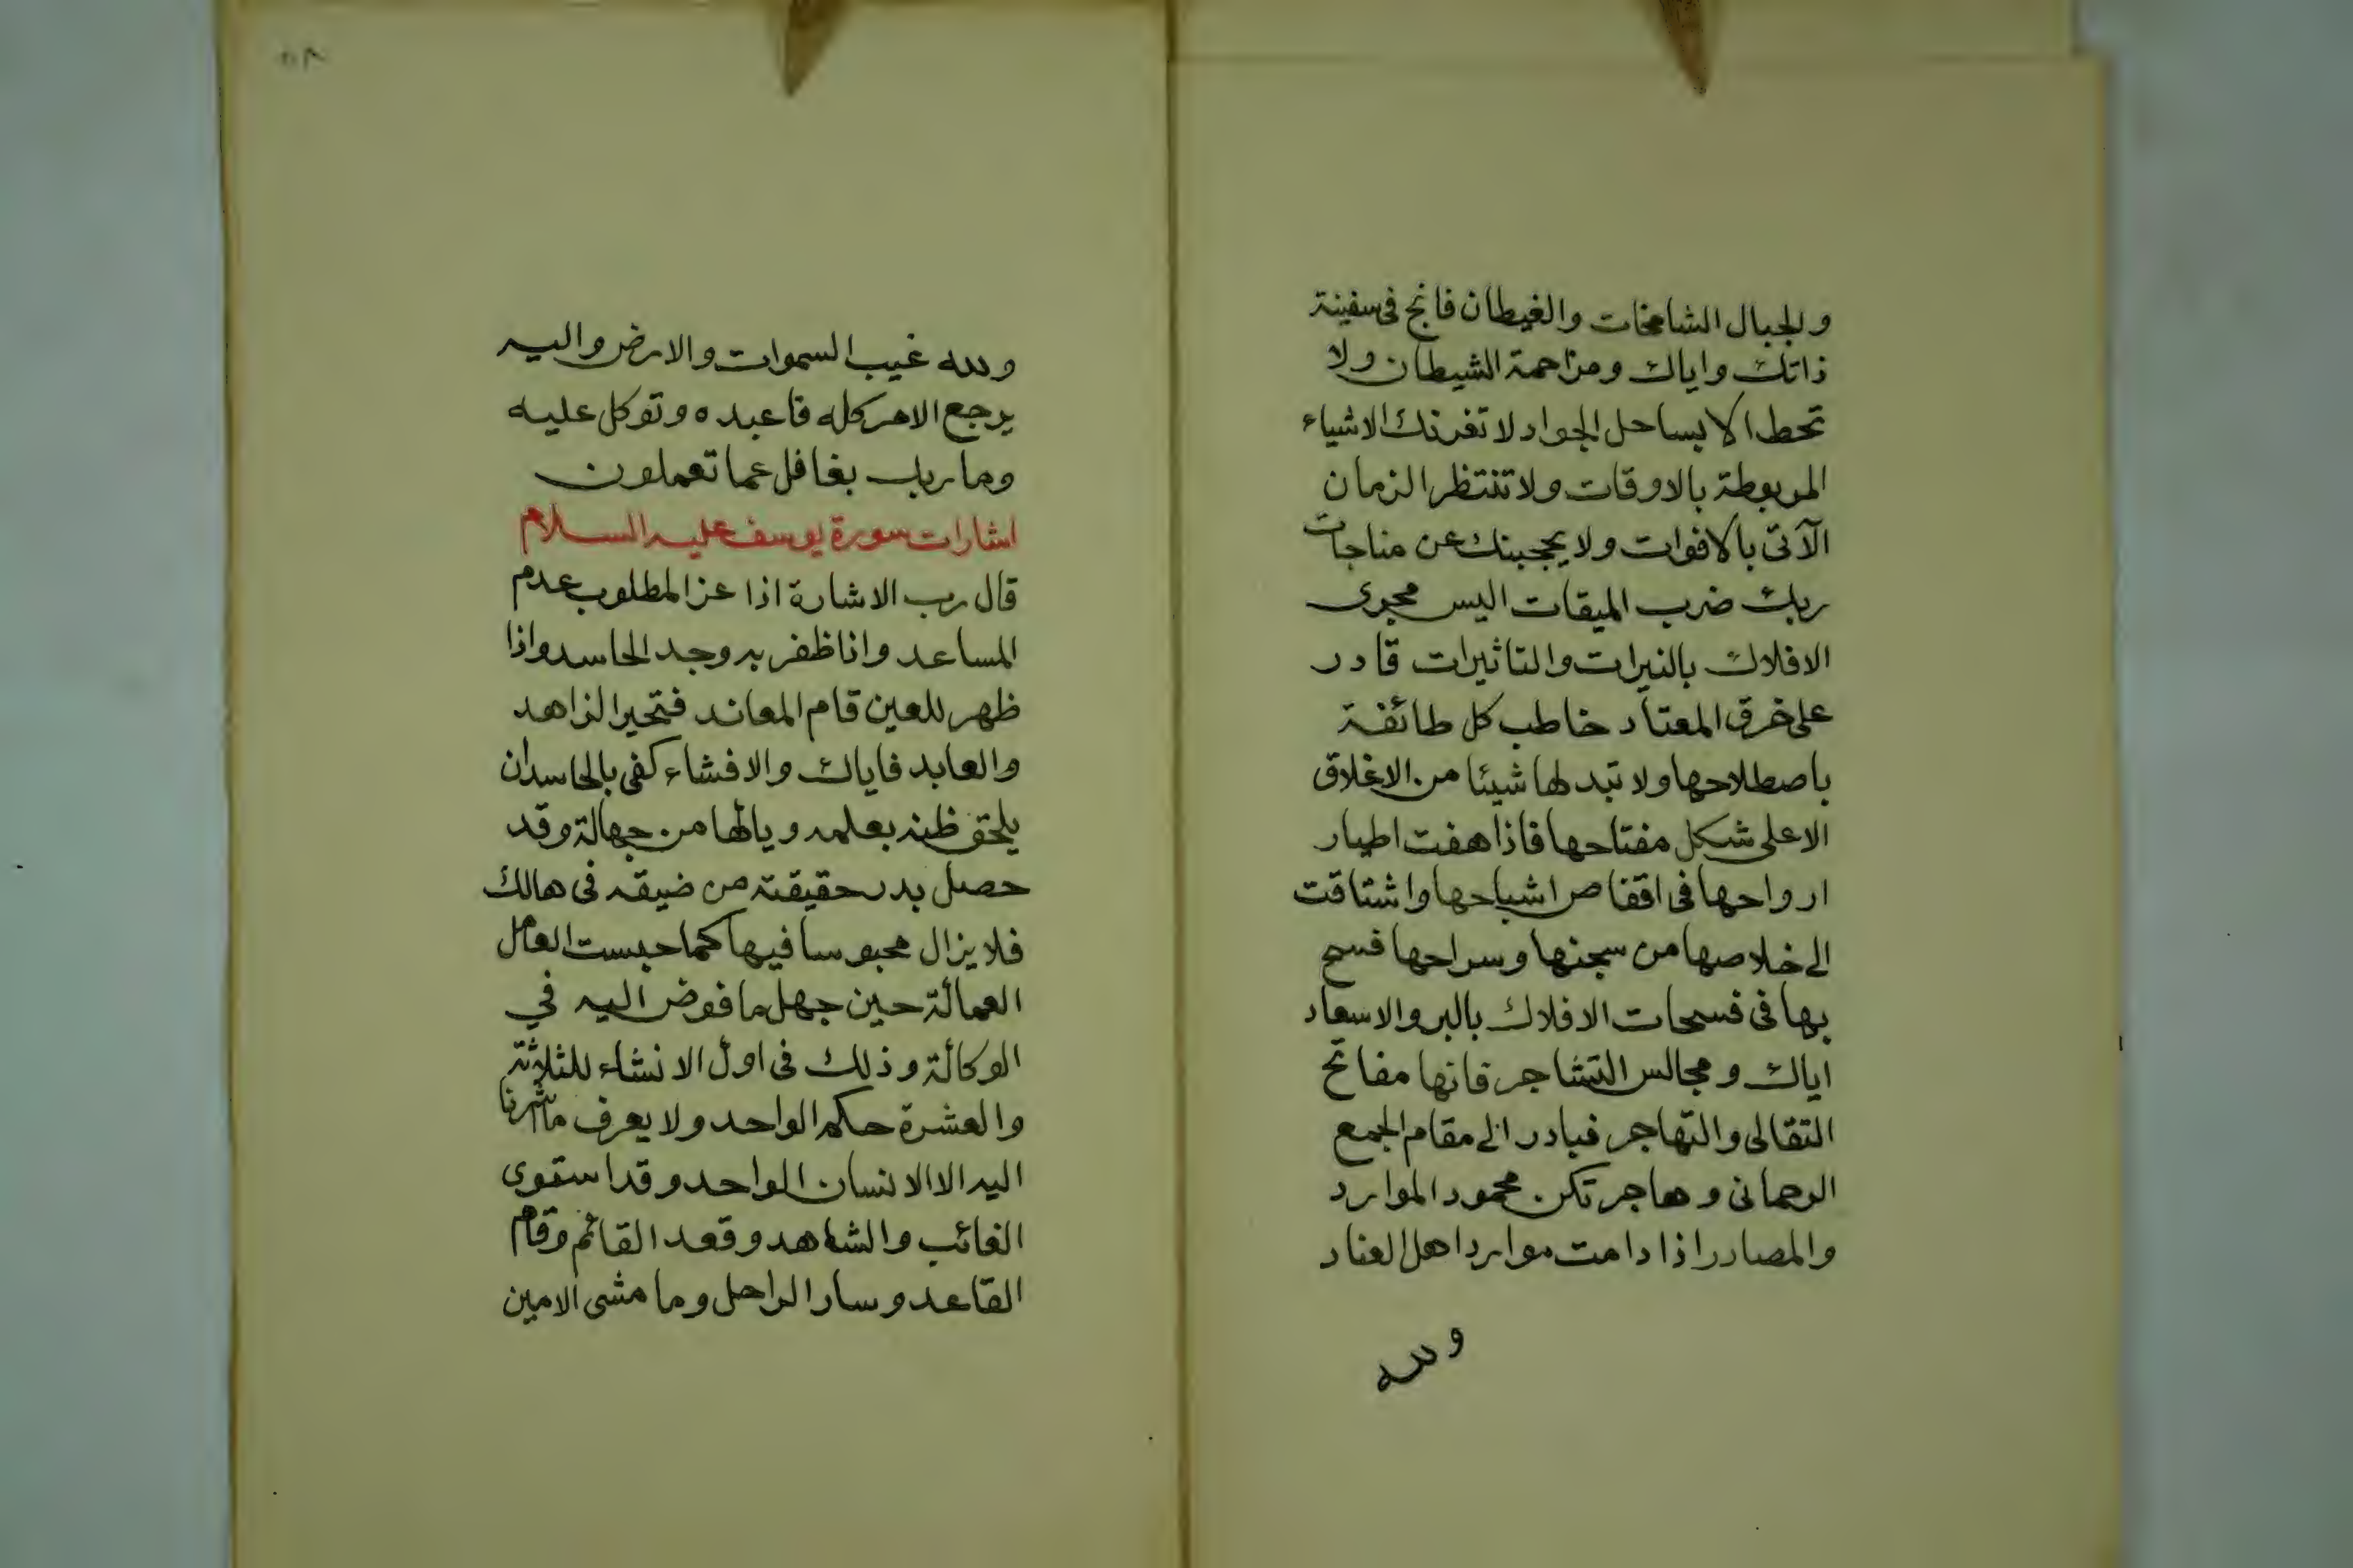 والجبال الشامخات والغيطان فانج فى سفينة
ذاتك واياك ومزاحمة الشيطان ولا
تحط الا بساحل الجواد لا تغرنك الاشياء
المربوطة بالاوقات ولا تنتظر الزمان
الآتى بالافوات ولا يحجبنك عن مناجات
ربك ضرب الميقات اليس مجرى
الافلاك بالنيرات والتاثيرات قادر
على خرق المعتاد خاطب كل طائفة
باصطلاحها ولا تبد لها شيئا من الاغلاق
الا على شكل مفتاحها فاذا هفت اطيار
ارواحها فى اقفاص اشباحها واشتاقت
الى خلاصها من سجنها وسراحها فسح
بها فى فسحات الافلاك بالبر والاسعاد
اياك ومجالس التشاجر فانها مفاتح
التقالى والتهاجر فبادر الى مقام الجمع
الرحمانى وهاجر تكن محمود الموارد
والمصادر اذا دامت موارد اهل العناد
ولله
ولله غيب السموات والارض واليه
يرجع الامر كله فاعبده وتوكل عليه
وما ربك بغافل عما تعملون
اشارات سورة يوسف عليه السلام
قال رب الاشارة اذا عز المطلوب عدم
المساعد واذا ظفر به وجد الحاسد واذا
ظهر للعين قام المعاند فتحير الزاهد
والعابد فاياك والافشاء كفى بالحاسد ان
يلحق ظنه بعلمه ويالها من جهالة وقد
حصل بدر حقيقته من ضيقه فى هالك
فلا يزال محبوسا فيها كما حبست العامل
العمالة حين جهل ما فوض اليه في
الوكالة وذلك فى اول الانشاء للثلاثة
والعشرة حكم الواحد ولا يعرف ما شرنا
اليه الا الانسان الواحد وقد استوى
الغائب والشاهد وقعد القائم وقام
القاعد وسار الراحل وما مشى الامين